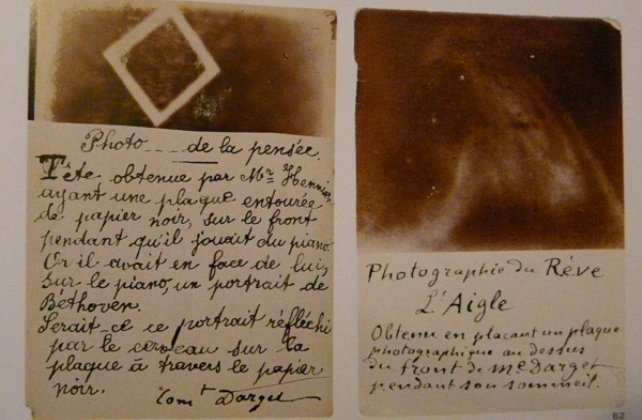 Photo____de la pensée.
Tête obtenue par Mr Hennier,
ayant une plaque entourée
de papier noir, sur le front
pendant qu'il jouait du piano.
Or il avait en face de lui,
sur le piano, un portrait de
Béthoven.
Serait-ce ce portrait réfléchi
par le cerveau sur la
plaque à travers le papier
noir.
Comt Darget
Photographie du Rêve
L'Aigle
Obtenu en placant un plaque
photographique au dessus
du front de Me Darget
pendant son sommeil.
62